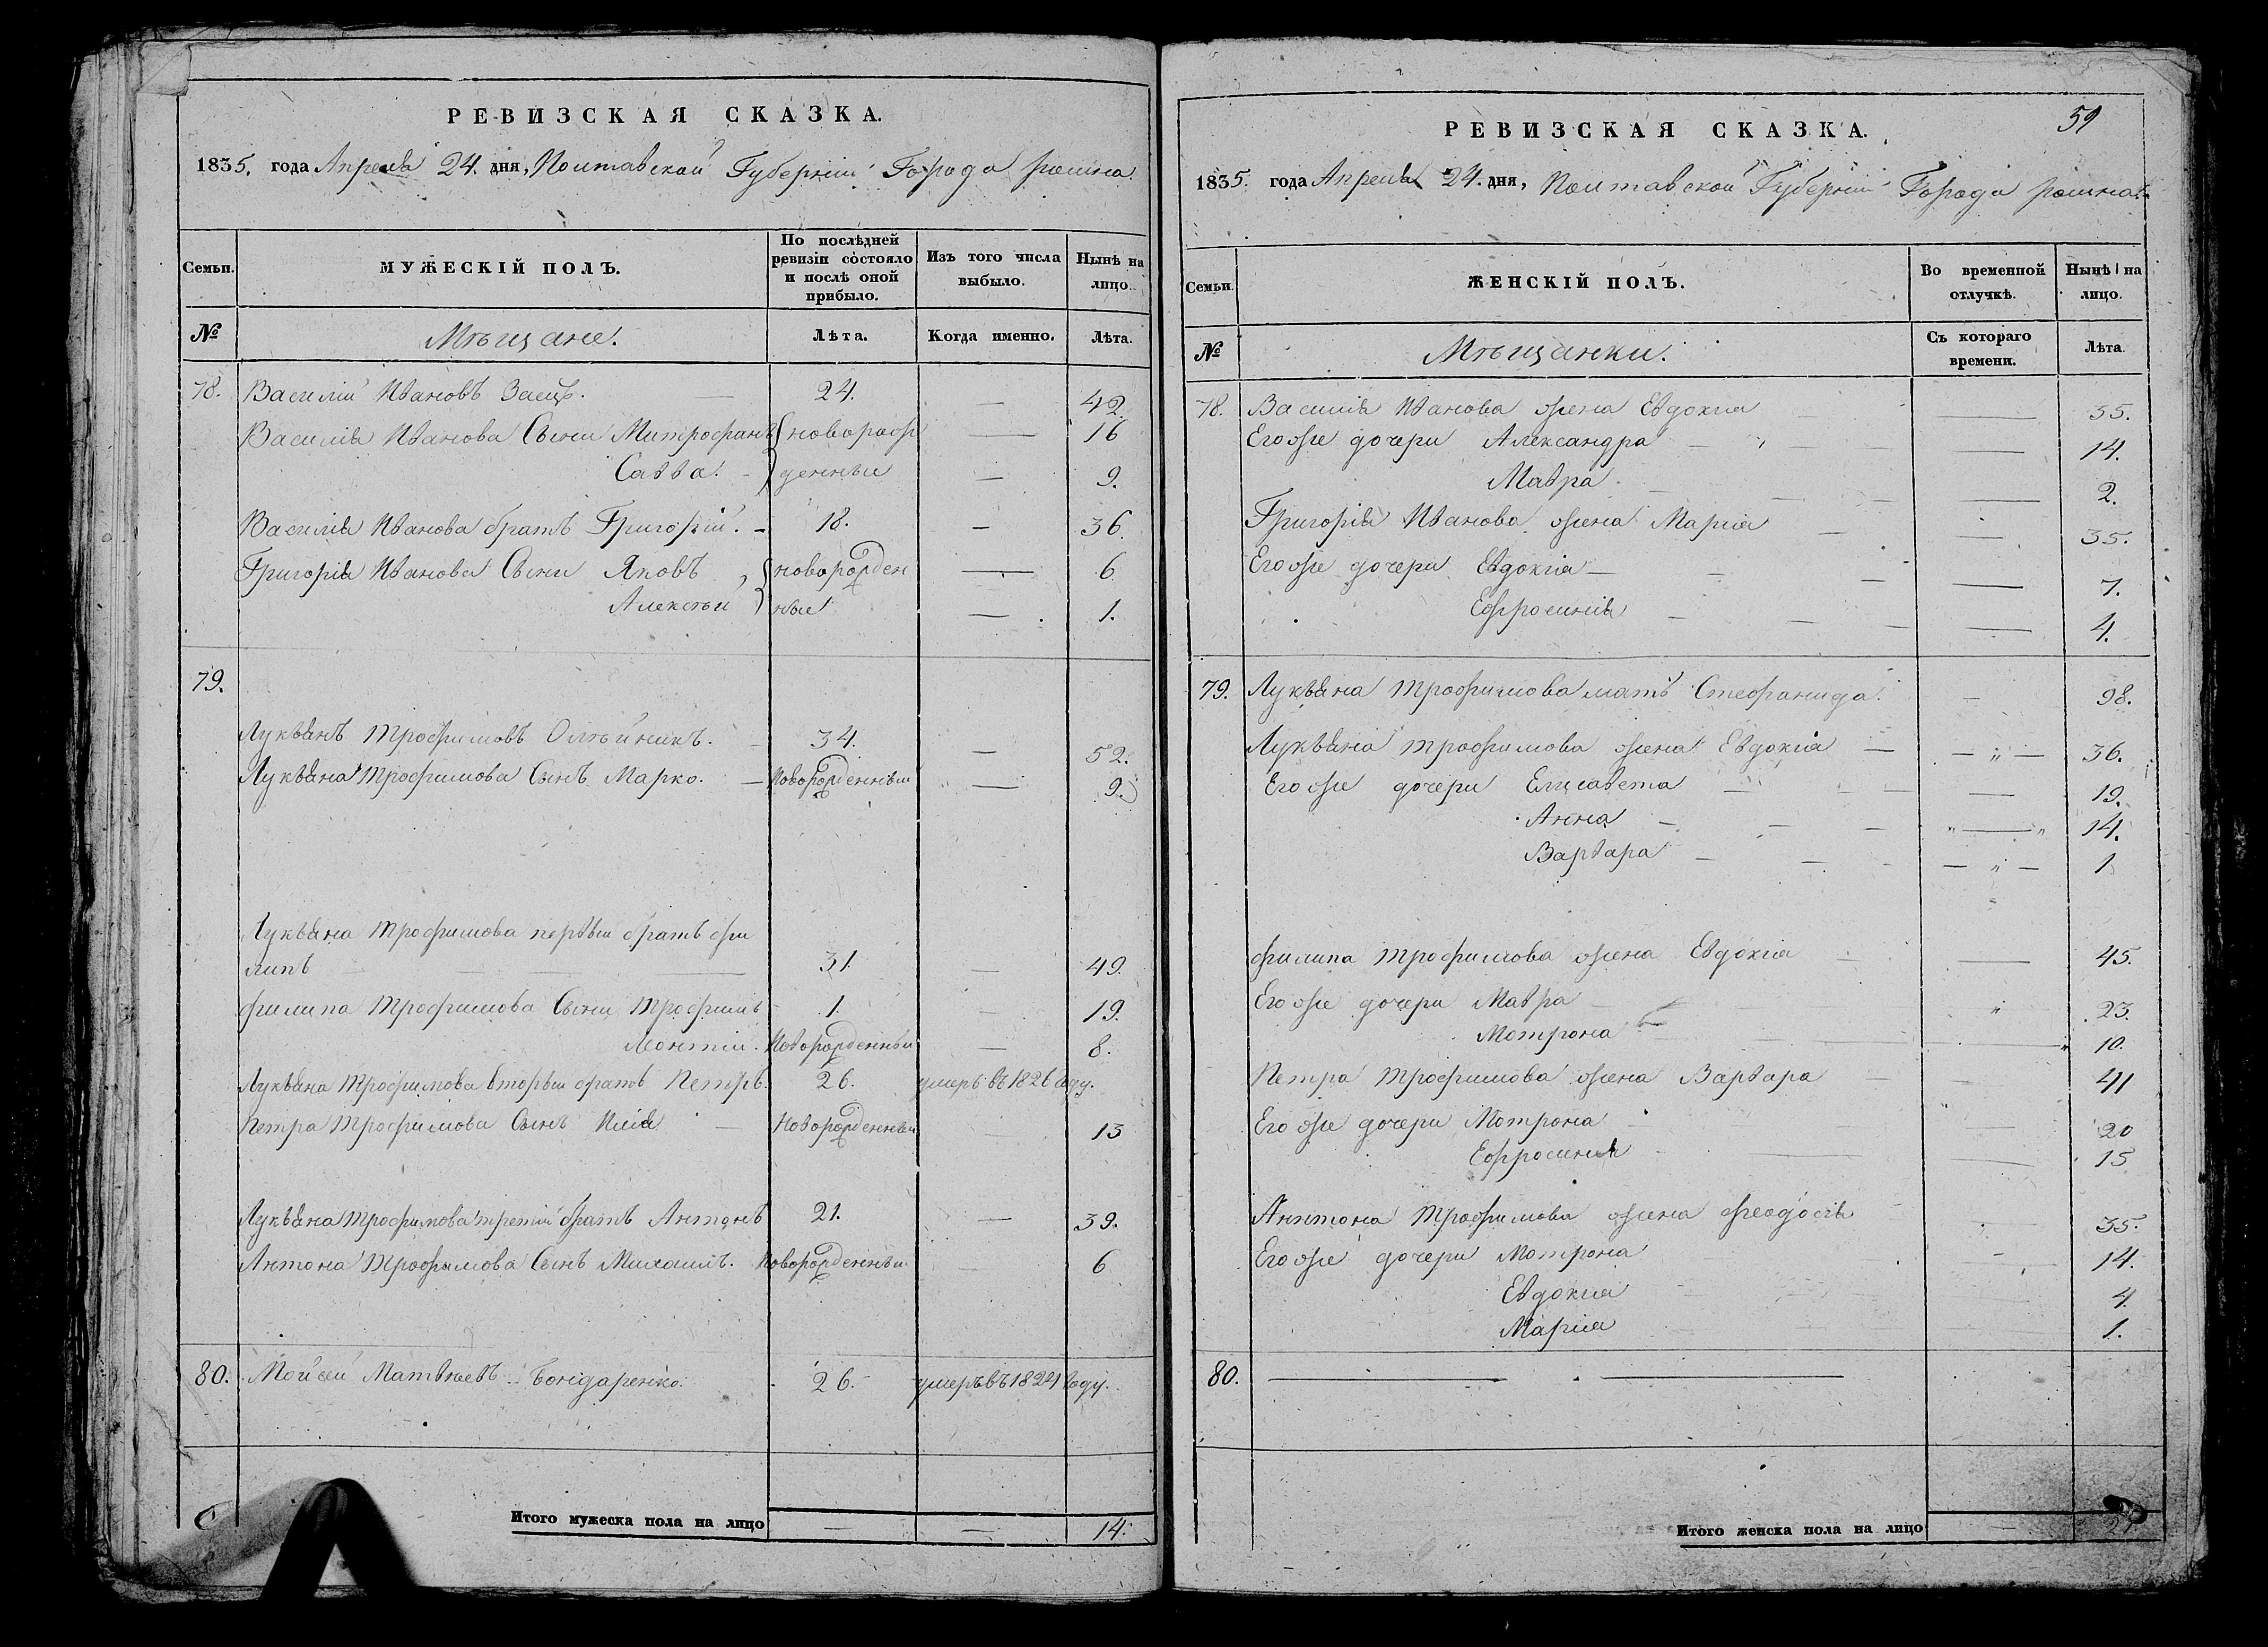 РЕВИЗСКАЯ СКАЗКА.
1835. года Апреля 24. дня, Полтавской Губернии Города ромна.
Семьи. МУЖЕСКІЙ ПОЛЪ. По послѣдней ревизіи состояло и послѣ оной прибыло. Изъ того числа выбыло. Нынѣ на лицо.
№ Мѣщане. Лѣта. Когда именно. Лѣта.
78. Василій Ивановъ Заецъ. 24. — 42.
Василія Иванова Сыни Митрофанъ новорож — 16
Савва. денныи — 9.
Василія Иванова братъ Григорій. 18. — 36.
Григорія Иванова Сыни Яковъ новорожден — 6
Алексѣй ные — 1.
79.
Лукьянъ Трофимовъ Олѣйникъ. 34. — 52.
Лукьяна Трофимова Сынъ Марко. Новорожденныи — 9.
Лукьяна Трофимова первыи братъ фи
липъ 31. — 49.
филипа Трофимова Сыни Трофимъ 1. — 19.
Леонтій. Новорожденныи — 8.
Лукьяна Трофимова вторыи братъ Петръ. 26. умеръ въ 1826 году.
Петра Трофимова Сынъ Илія Новорожденныи — 13
Лукьяна Трофимова третій братъ Антонъ 21. — 39.
Антона Трофимова Сынъ Михаилъ. Новорожденныи — 6
80. Мойсей Матвѣевъ Бондаренко. 26. умеръ въ 1824 году.
Итого мужеска пола на лицо — — 14.
59
РЕВИЗСКАЯ СКАЗКА.
1835. года Апреля 24. дня, Полтавской Губернии Города ромна.
Семьи. ЖЕНСКІЙ ПОЛЪ. Во временной отлучкѣ. Нынѣ на лицо.
№ Мѣщанки. Съ котораго времени. Лѣта.
78. Василія Иванова жена Евдокія — 35.
Егоже дочери Александра — 14.
Мавра — 2.
Григорія Иванова жена Марія — 35.
Егоже дочери Евдокія — 7.
Ефросинія — 4.
79. Лукьяна Трофимова мать Стефанида. — 98.
Лукьяна Трофимова жена Евдокія — „ — 36.
Егоже дочери Елисавета — 19.
Анна „ — „ 14.
Варвара — „ — 1
филипа Трофимова жена Евдокія — 45.
Егоже дочери Мавра „ 23.
Мотрона „ 10.
Петра Трофимова жена Варвара — 41
Егоже дочери Мотрона — 20
Ефросинія — 15
Антона Трофимова жена феодосія 35.
Егоже дочери Мотрона — 14.
Евдокія 4.
Марія 1.
80. — —
Итого женска пола на лицо —